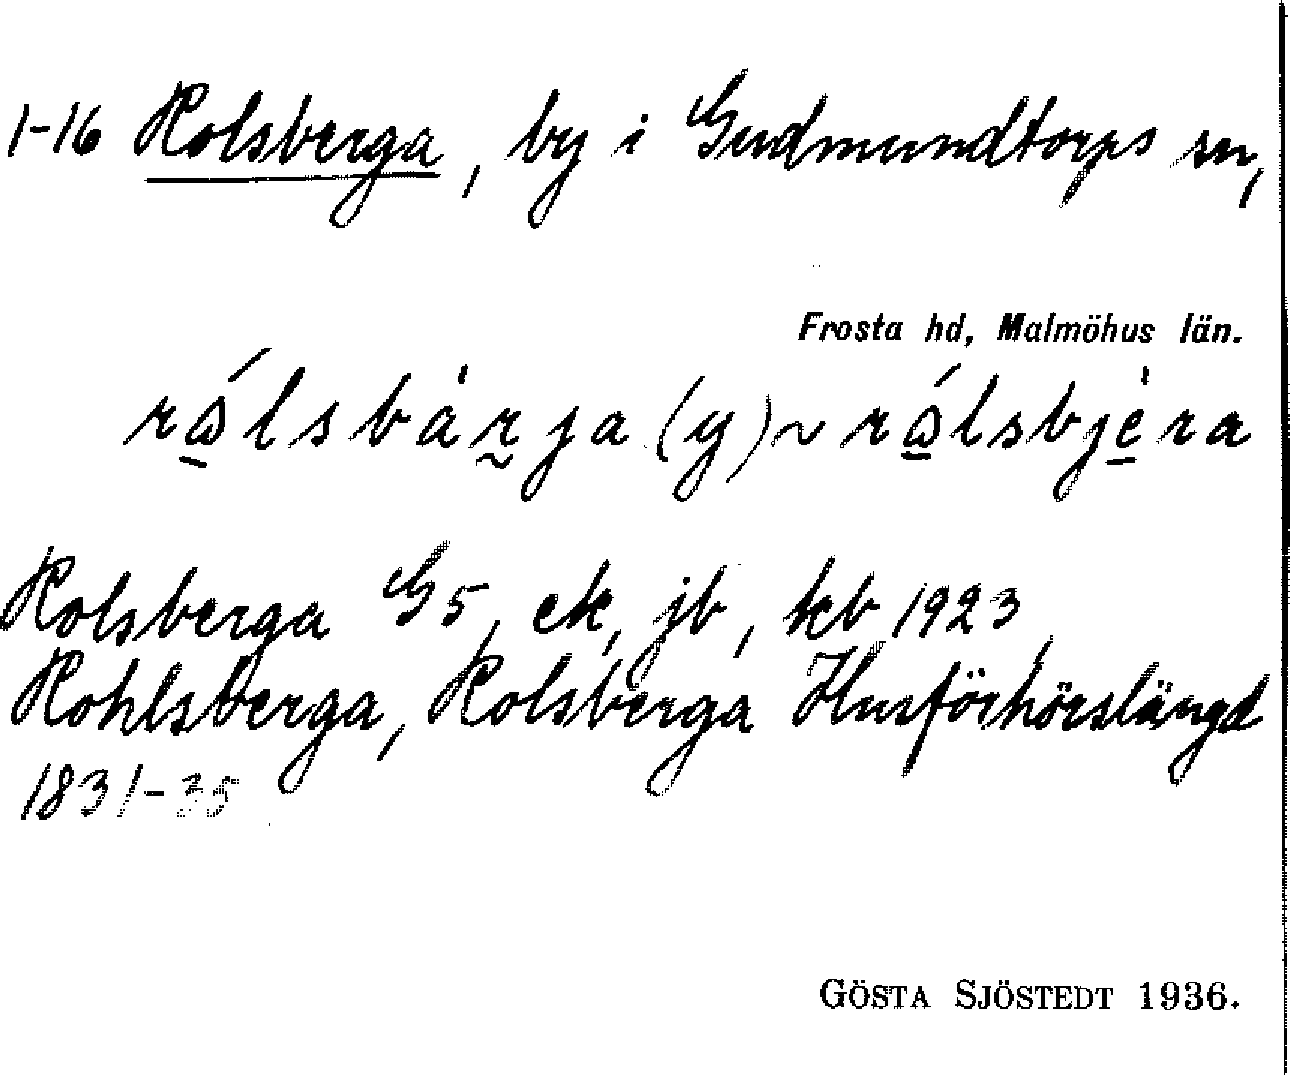 1-16 Rolsberga, by i Gudmundtorps sn,
Frosta hd, Malmöhus län.
rålsbàrja (y) ~ rålsbjèra
Rolsberga G5, ek, jb, kb 1923,
Rohlsberga, Rolsberga Husförhörslängd
1831-35
GÖSTA SJÖSTEDT 1936.